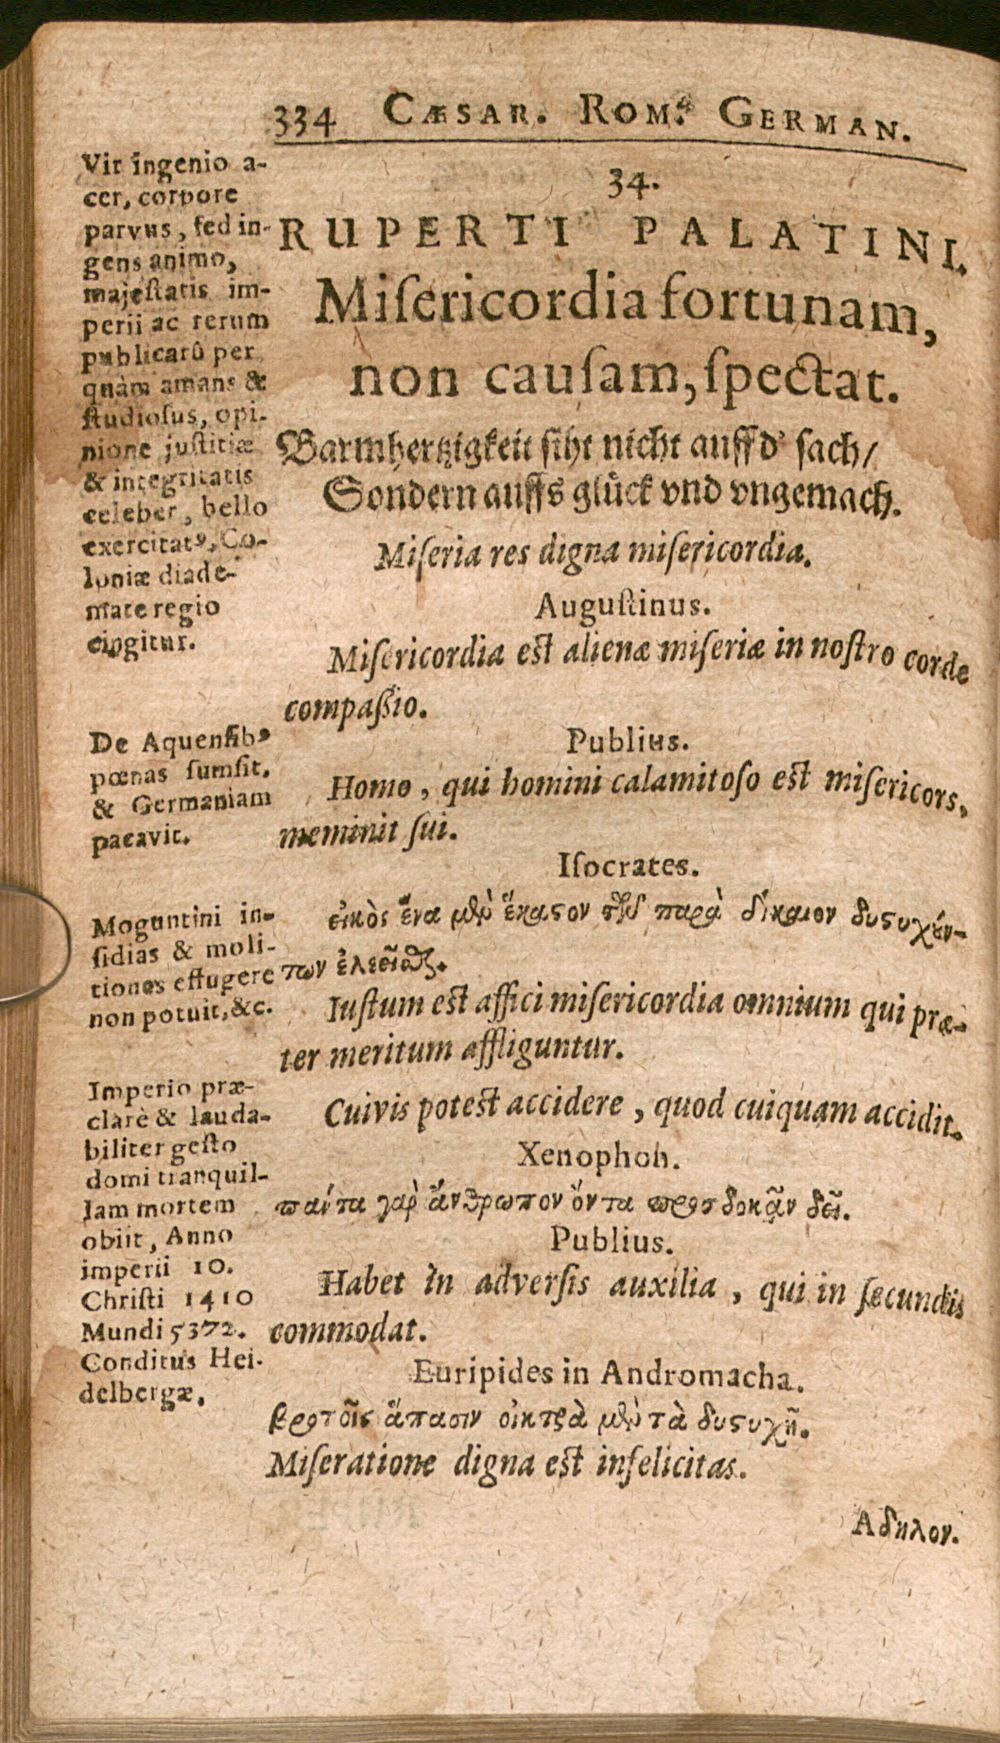 334 CÆSAR. ROM. GERMAN.
Vir ingenio a-
cer, corpore
parvus, sed in-
gens animo,
majestatis im-
perii ac rerum
publicarū per
quàm amans &
studiosus, opi-
nione justitiæ
& integritatis
celeber, bello
exercitatꝰ, Co-
loniæ diade-
mate regio
cingitur.
De Aquensibꝰ
pœnas sumsit.
& Germaniam
pacavit.
Moguntini in-
sidias & moli-
tiones effugere
non potuit, &c.
Imperio præ-
clarè & lauda-
biliter gesto
domi tranquil-
lam mortem
obiit, Anno
imperii 10.
Christi 1410
Mundi 5372.
Conditus Hei-
delbergæ.
34.
RUPERTI PALATINI.
Misericordia fortunam,
non causam, spectat.
Barmhertzigkeit siht nicht auff d' sach/
Sondern auffs glück vnd vngemach.
Miseria res digna misericordia.
Augustinus.
Misericordia est alienæ miseriæ in nostro corde
compaßio.
Publius.
Homo, qui homini calamitoso est misericors,
meminit sui.
Isocrates.
εἰκὸς ἕνα μὲν ἕκαστον τῶν παρὰ δίκαιον δυστυχούν-
των ἐλεεῖσθαι.
Iustum est affici misericordia omnium qui præ-
ter meritum affliguntur.
Cuivis potest accidere, quod cuiquam accidit.
Xenophon.
πάντα γὰρ ἄνθρωπον ὄντα προσδοκᾷν δεῖ.
Publius.
Habet in adversis auxilia, qui in secundis
commodat.
Euripides in Andromacha.
βροτοῖς ἅπασιν οἰκτρὰ μὲν τὰ δυστυχῆ.
Miseratione digna est infelicitas.
Αδηλον.